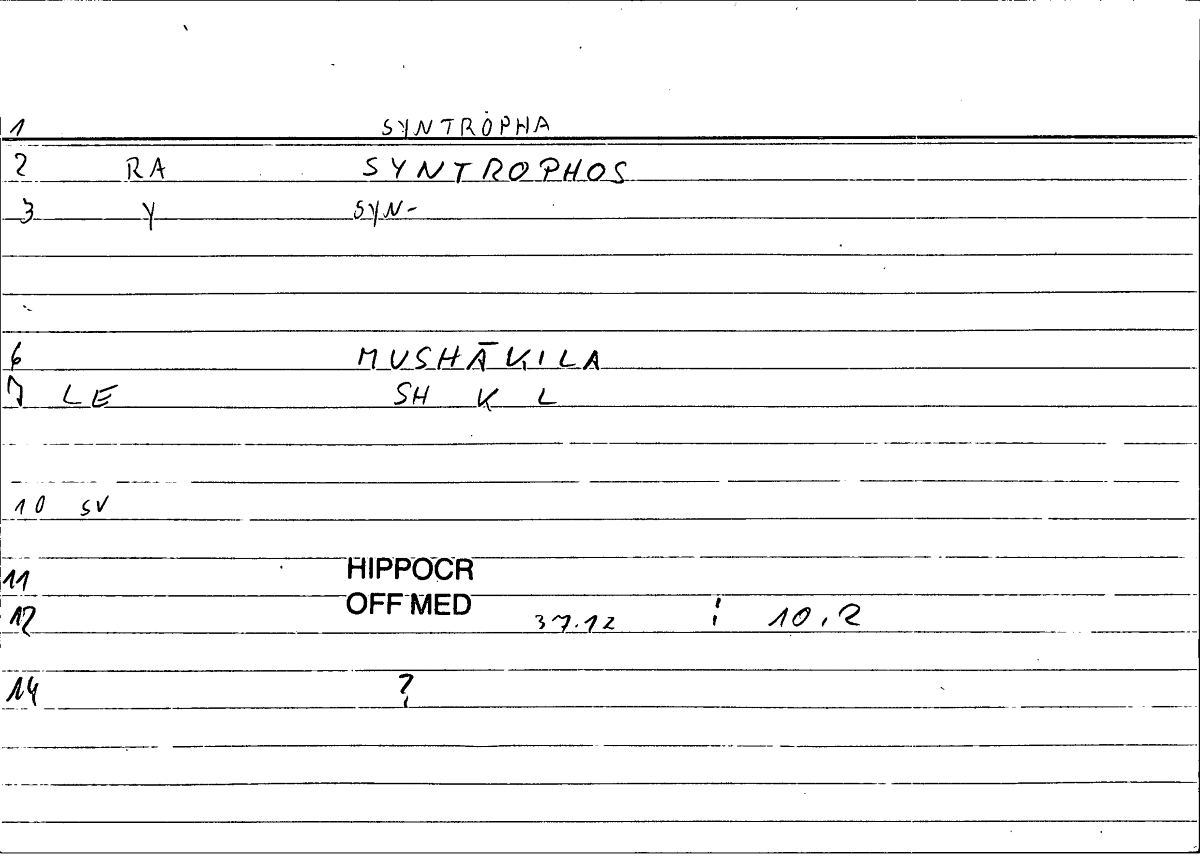 1 SYNTRÓPHA
2 RA SYNTROPHOS
3 Y SYN-
6 MUSHĀKILA
7 LE SH K L
10 SV
11 HIPPOCR
12 OFF MED 37.12 ; 10,2
14 ?